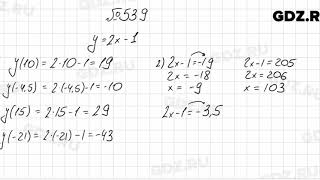 GDZ.R
№539
y=2x-1
y(10)=2·10-1=19
y(-4,5)=2·(-4,5)-1=-10
y(15)=2·15-1=29
y(-21)=2·(-21)-1=-43
2) 2x-1=-19
2x=-18
x=-9
2x-1=-3,5
2x-1=205
2x=206
x=103